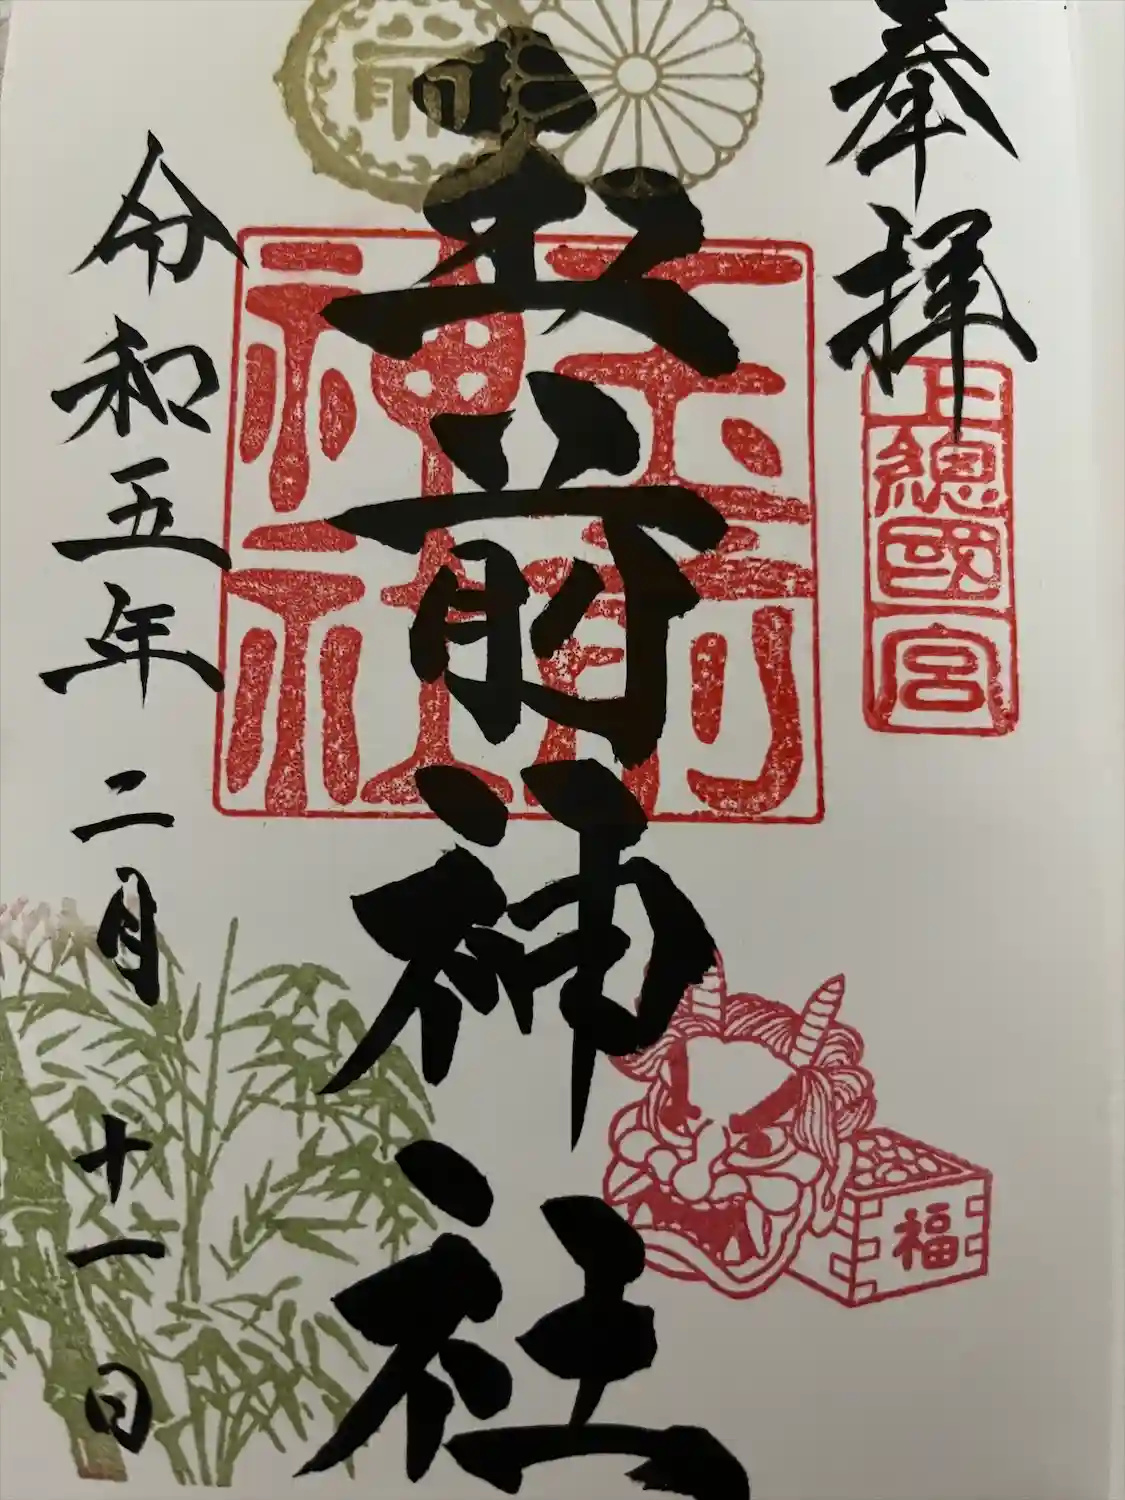 奉拝
上總國一宮
玉前神社
玉前神社
前
令和五年二月十一日
福